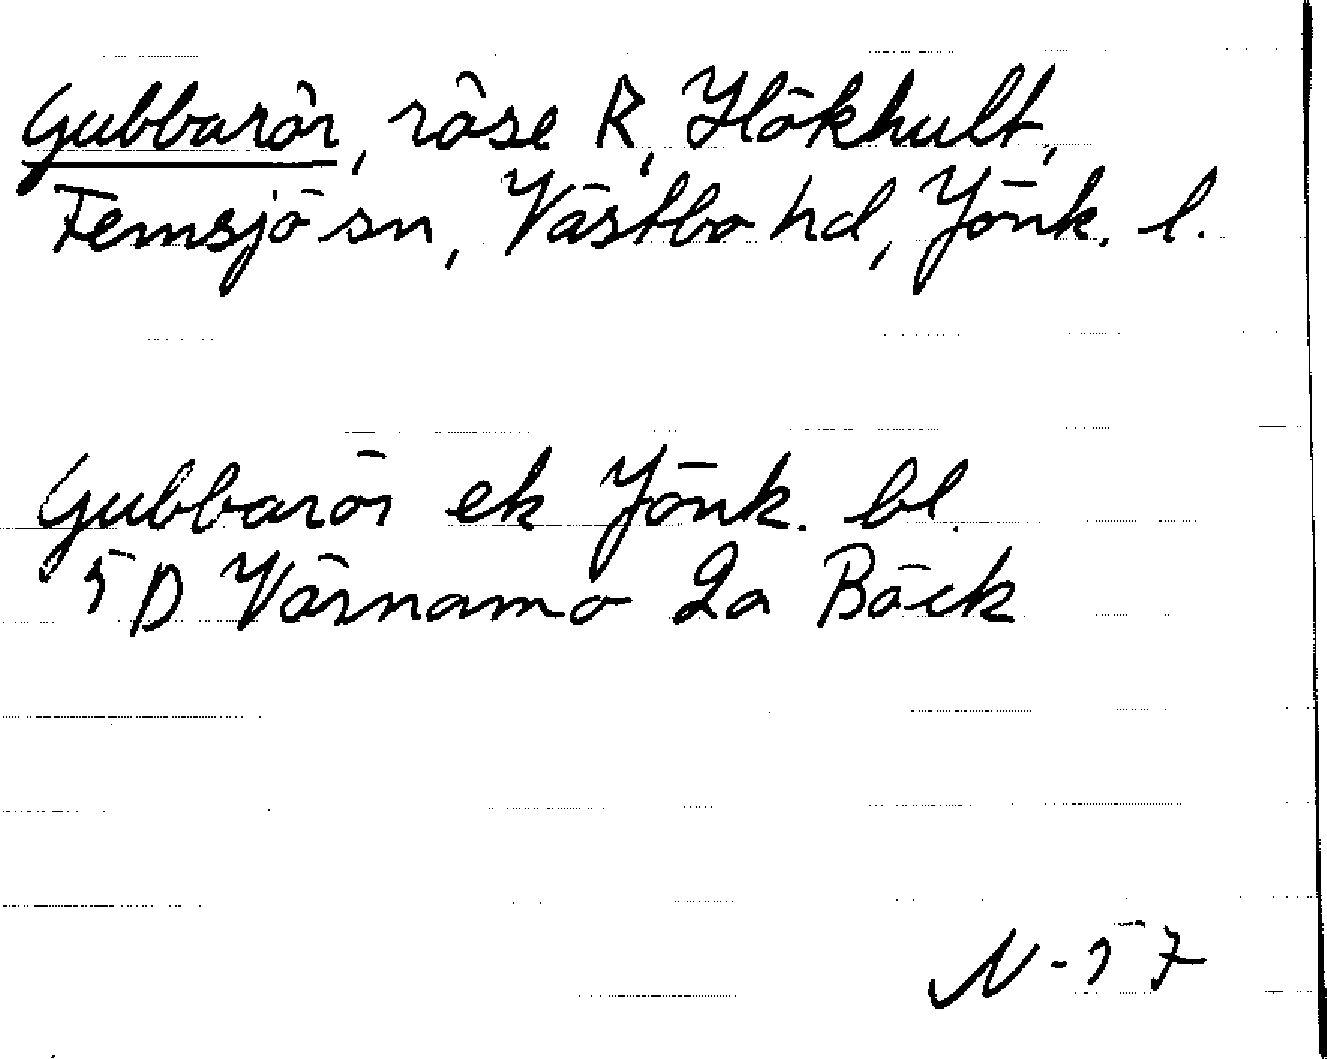 Gubbarör, röse R, Hökhult,
Femsjö sn, Västbo hd, Jönk. l.
Gubbarör ek Jönk. bl.
5 D Värnamo 2a Bäck
N-57